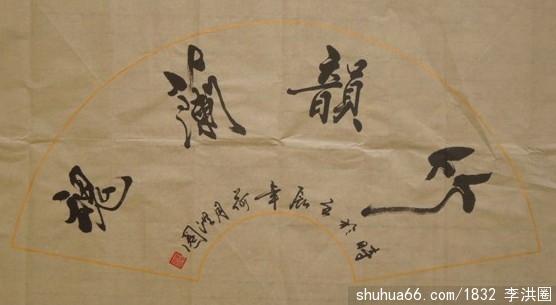 竹韻蘭魂
時於壬辰年荷月洪圖
shuhua66.com/1832 李洪圖